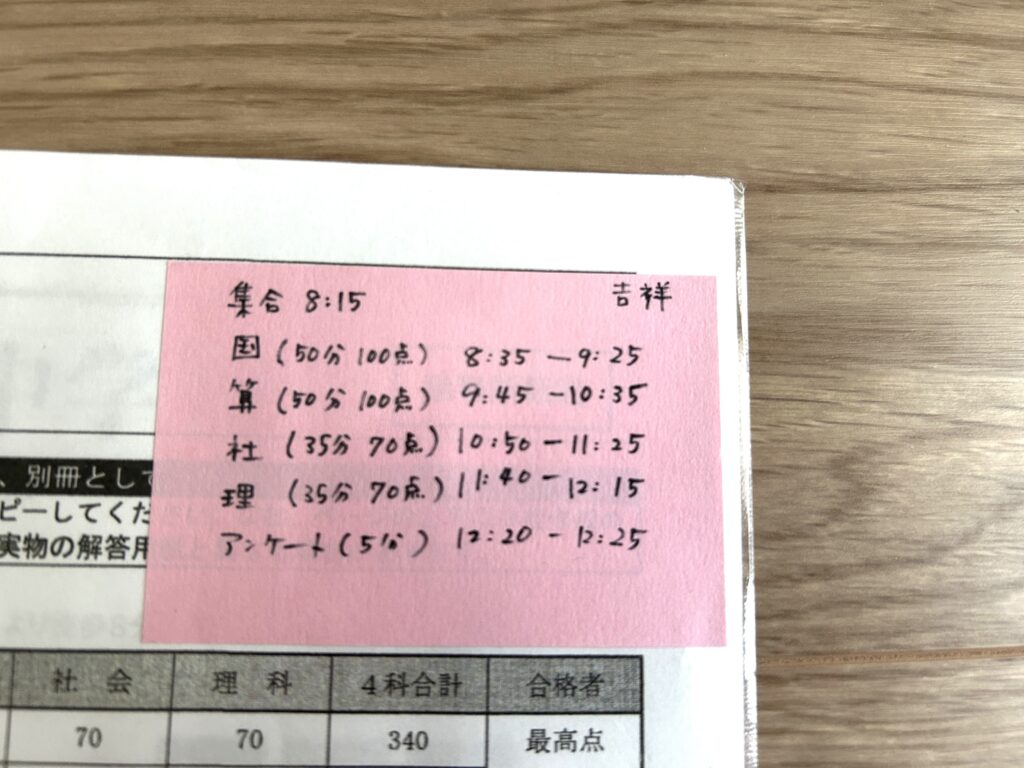 集合 8:15 吉祥
国 (50分 100点) 8:35 － 9:25
算 (50分 100点) 9:45 －10:35
社 (35分 70点) 10:50 － 11:25
理 (35分 70点) 11:40 － 12:15
アンケート (5分) 12:20 － 12:25
、別冊として
ピーしてくだ
実物の解答用
社 会 理 科 4科合計 合格者
70 70 340 最高点